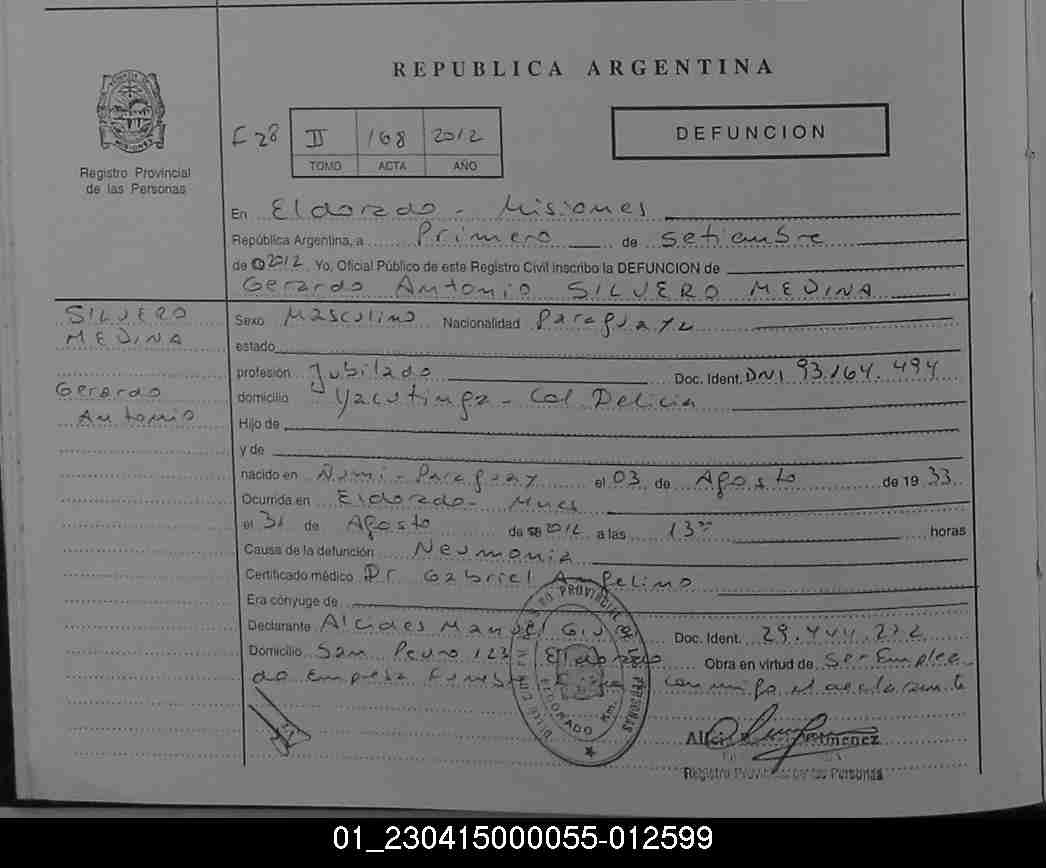 REPUBLICA ARGENTINA
F 28 II 168 2012
TOMO ACTA AÑO
DEFUNCION
Registro Provincial
de las Personas
En Eldorado - Misiones
República Argentina, a Primero de Setiembre
de 2012 Yo, Oficial Público de este Registro Civil inscribo la DEFUNCION de
Gerardo Antonio SILVERO MEDINA
SILVERO
MEDINA
Gerardo
Antonio
Sexo Masculino Nacionalidad Paraguaya
estado
profesión Jubilado Doc. Ident. DNI 93.164.494
domicilio Yacutinga - Col Delicia
Hijo de
y de
nacido en Paraguay el 03 de Agosto de 19 33
Ocurrida en Eldorado - Mnes
el 31 de Agosto de 2012 a las 13 horas
Causa de la defunción Neumonia
Certificado médico Dr. Gabriel Angelino
Era cónyuge de
Declarante Alcides Manuel Doc. Ident. 29.444.272
Domicilio San Pedro 123 Eldorado Obra en virtud de Ser Emplea
do Empresa Conmigo el declarante
REGISTRO PROVINCIAL DE LAS PERSONAS
ELDORADO
Jimenez
Registro Provincial de las Personas
01_230415000055-012599